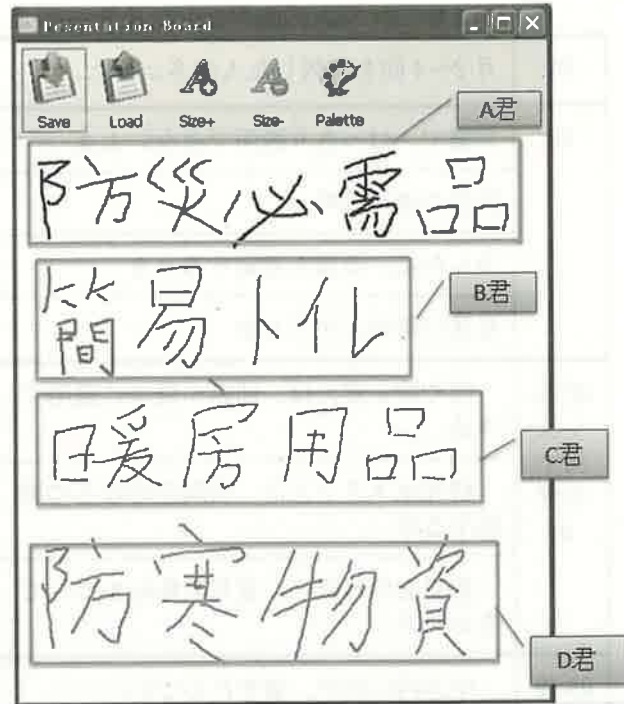 Pesentation Board
Save Load Size+ Size- Palette
A君
防災必需品
簡易トイレ
B君
暖房用品
C君
防寒物資
D君